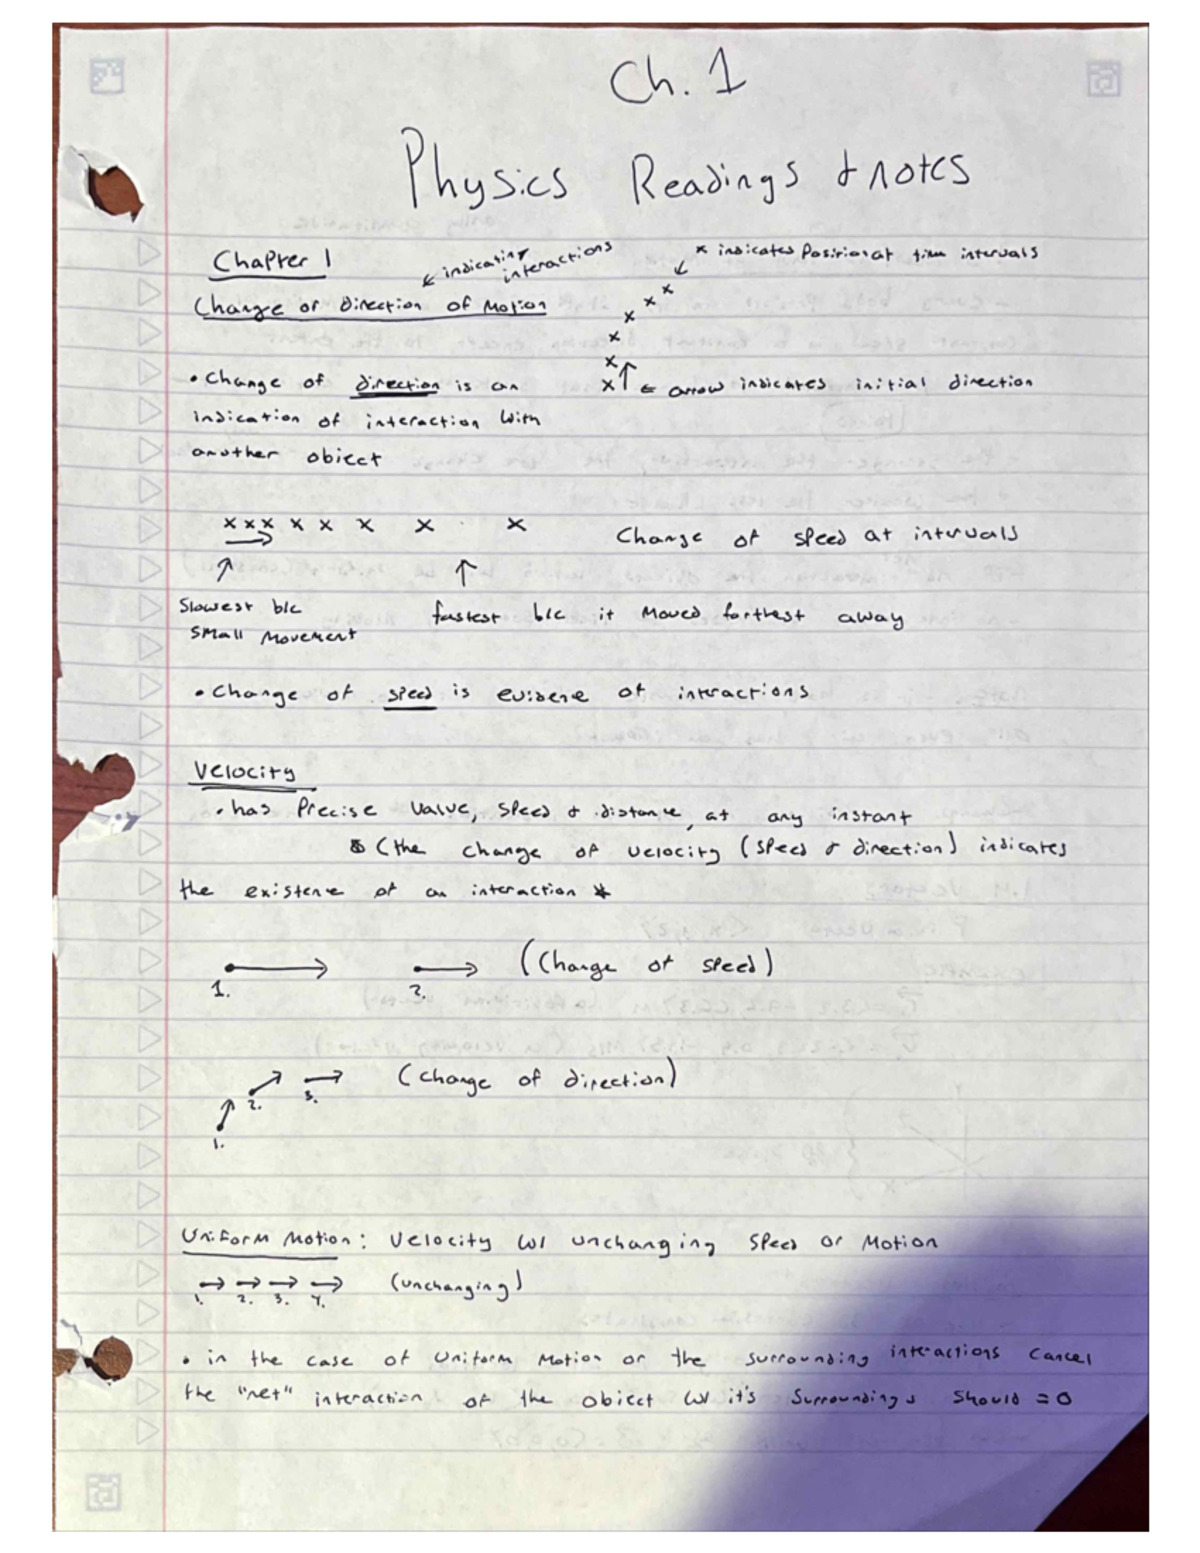 Ch. 1
Physics Readings & notes
Chapter 1
indicating interactions
x indicates Position at time intervals
Change or direction of Motion
• Change of direction is an
arrow indicates initial direction
indication of interaction with
another object
x x x x x x x x
Change of speed at intervals
Slowest b/c
small movement
fastest b/c it moved farthest away
• Change of speed is evidene of interactions
Velocity
• has Precise value, speed & distance, at any instant
(the change of velocity (speed & direction) indicates
the existene of an interaction *
1. 2. (Change of speed)
1. 2. 3. (Change of direction)
Uniform Motion: Velocity w/ unchanging speed or Motion
1. 2. 3. 4. (unchanging)
• in the case of uniform motion or the surrounding interactions cancel
the "net" interaction of the object w/ it's surroundings should = 0